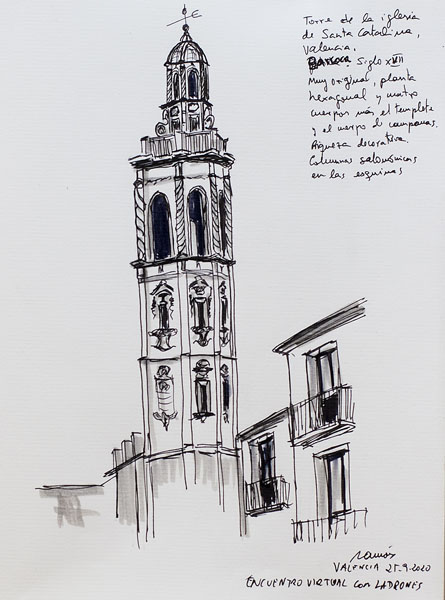 Torre de la iglesia
de Santa Catalina,
Valencia.
Barroca. Siglo XVII
Muy original, planta
hexagonal y cuatro
cuerpos más el templete
y el cuerpo de campanas.
Riqueza decorativa.
Columnas salomónicas
en las esquinas
Ramón
VALENCIA 25-9-2020
ENCUENTRO VIRTUAL con LADRONES